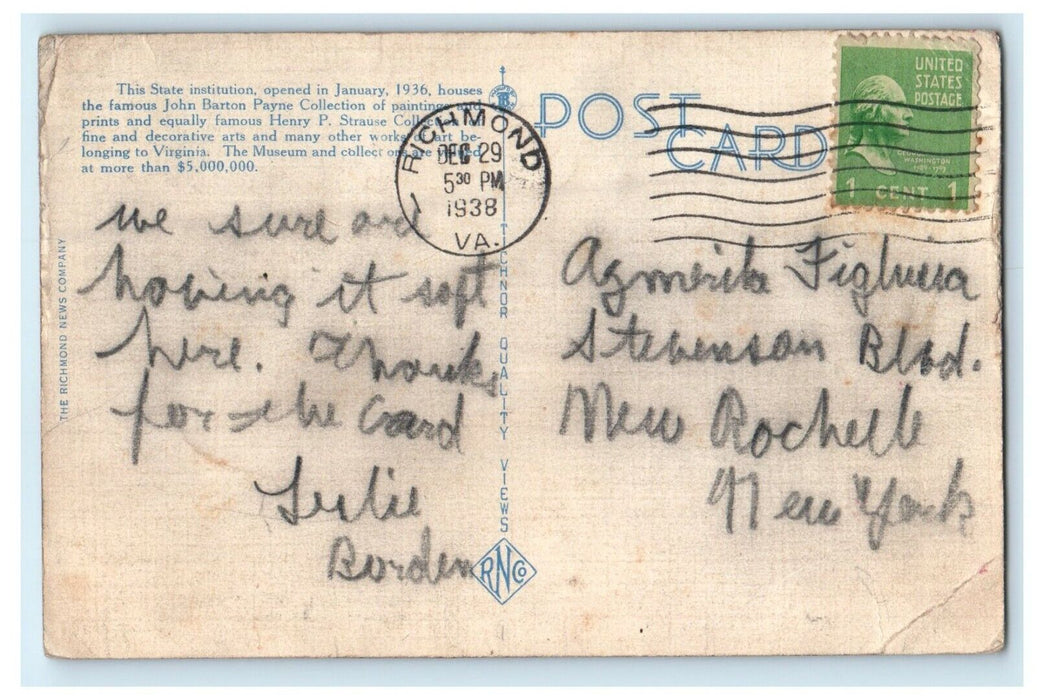 This State institution, opened in January, 1936, houses
the famous John Barton Payne Collection of paintings and
prints and equally famous Henry P. Strause Collection of
fine and decorative arts and many other works of art be-
longing to Virginia. The Museum and collections are valued
at more than $5,000,000.
POST
CARD
UNITED
STATES
POSTAGE
GEORGE
WASHINGTON
1 CENT 1
RICHMOND
DEC 29
5 30 PM
1938
VA.
THE RICHMOND NEWS COMPANY
TICHNOR QUALITY VIEWS
RNCo
we sure are
having it soft
here. Thanks
for the card
Leslie
Borden
Stevenson Blvd.
New Rochelle
New York